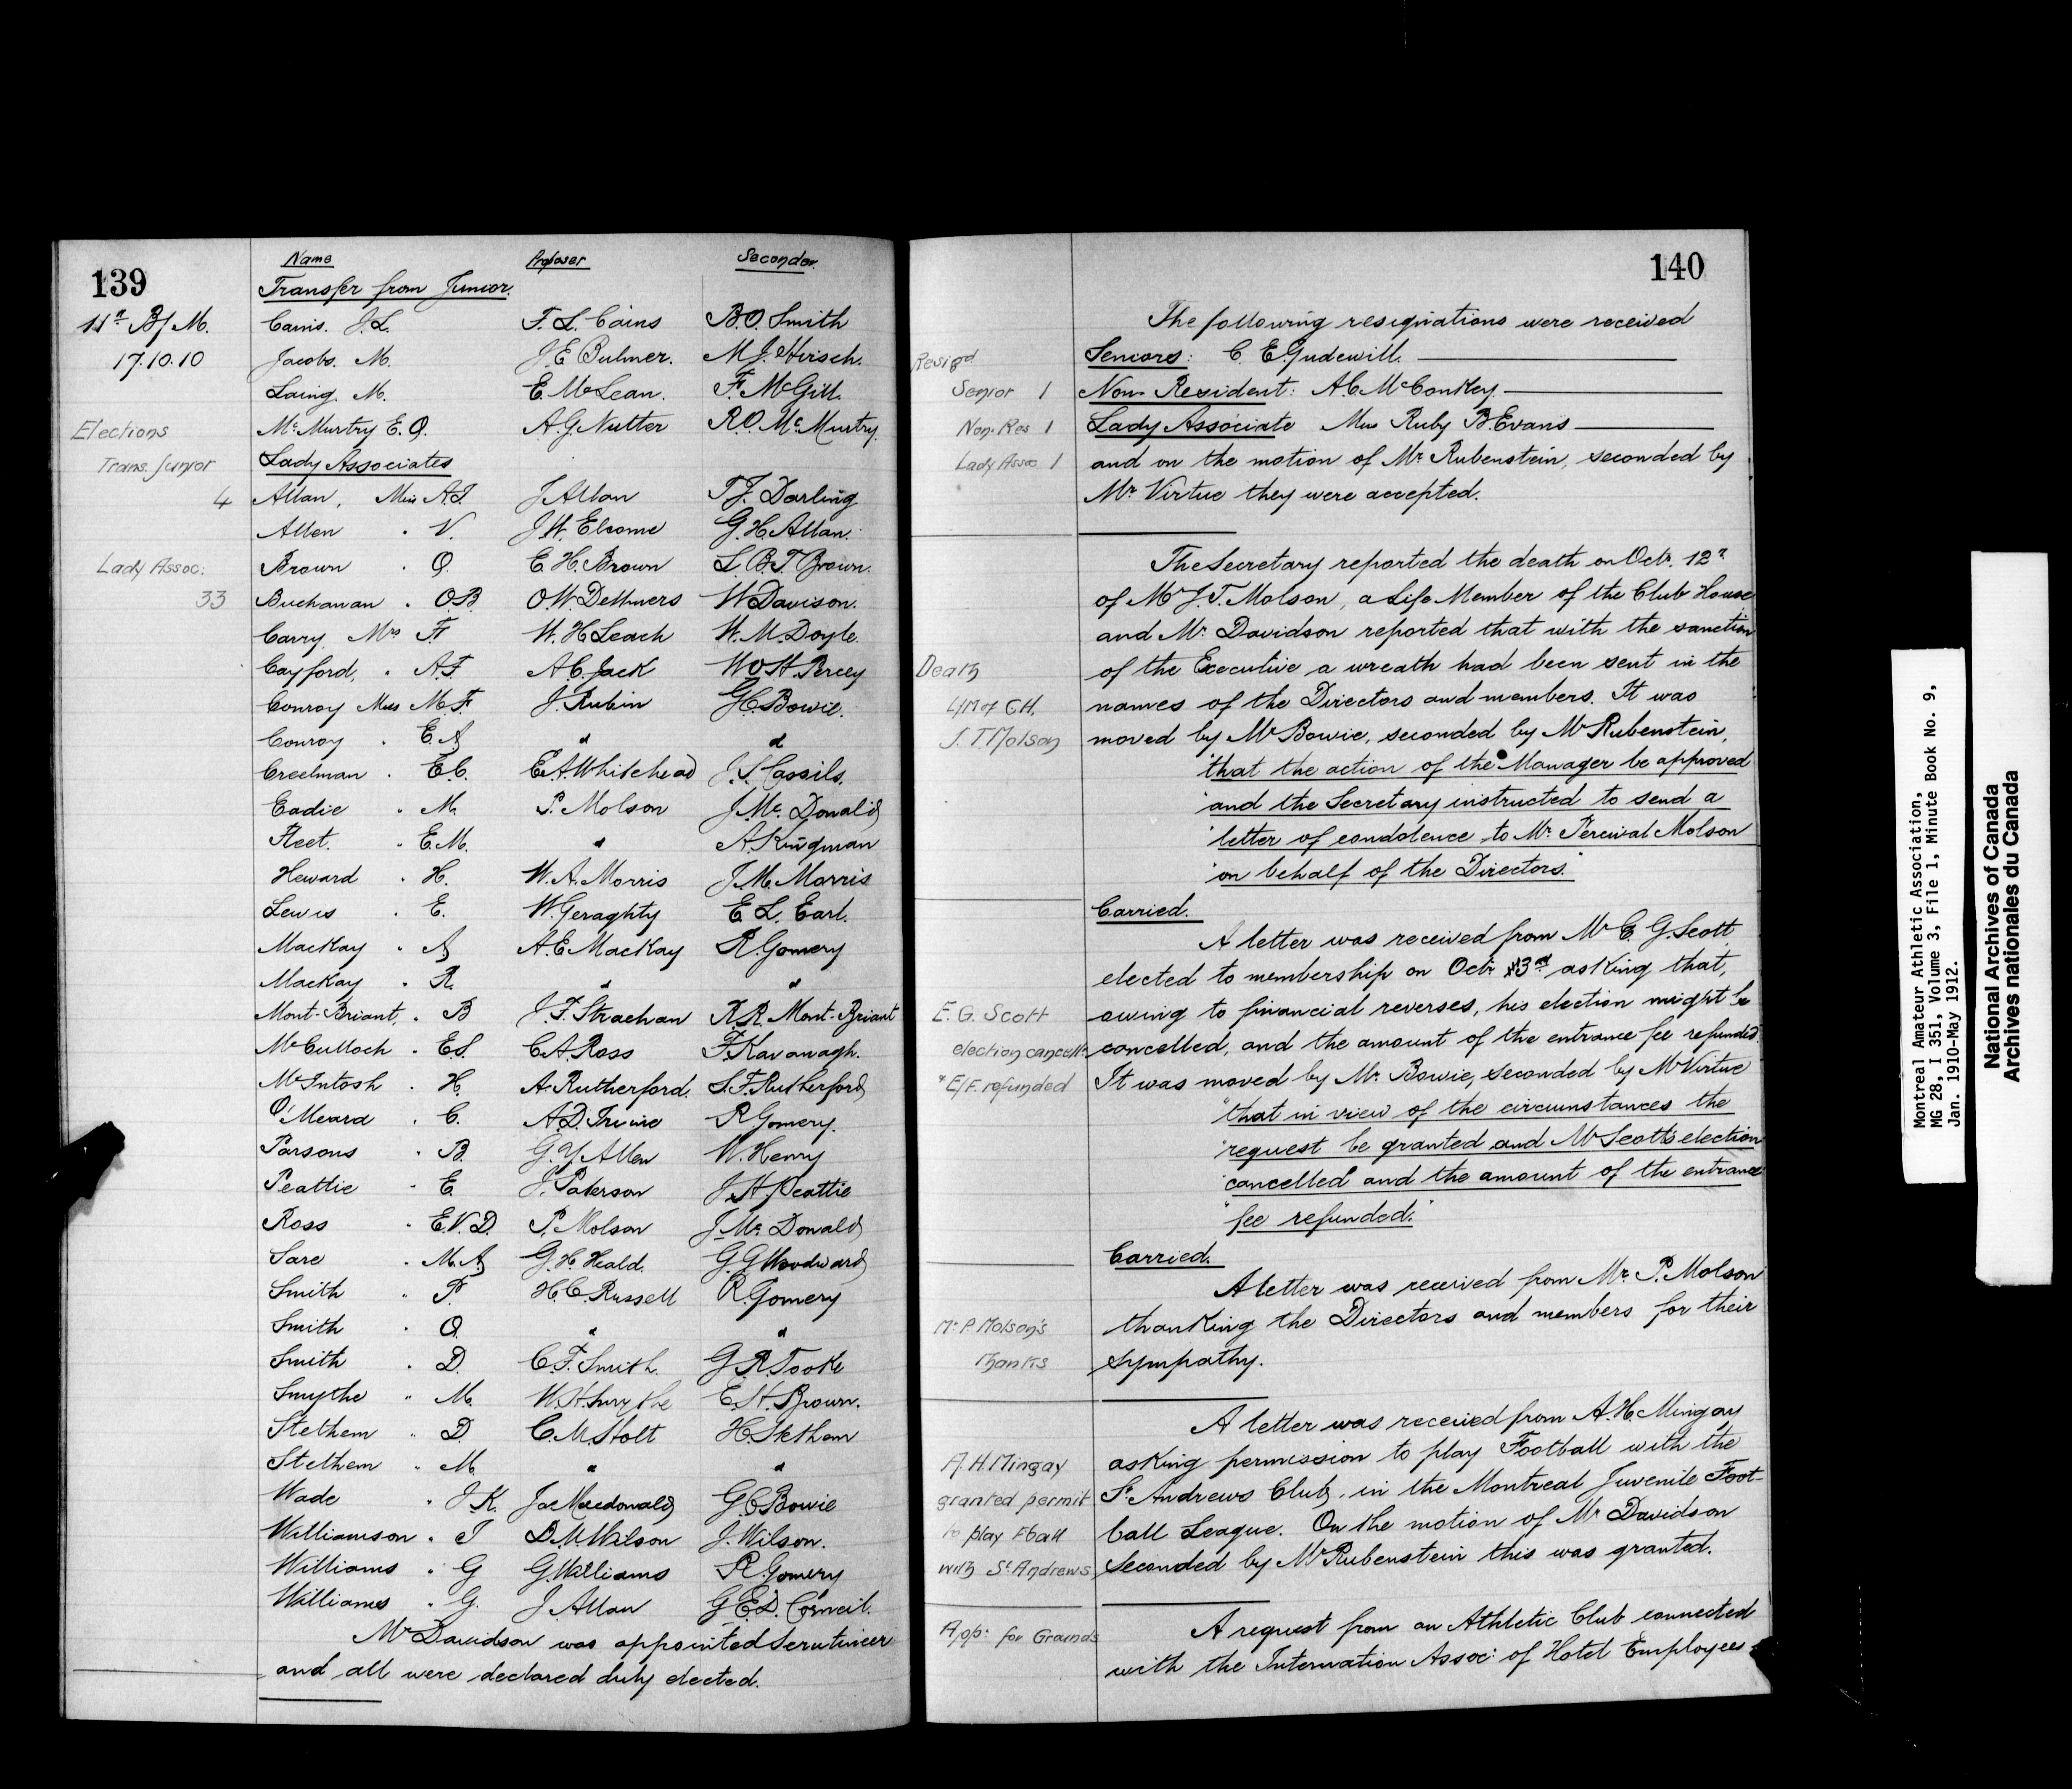 139
Name Proposer Seconder.
Transfer from Junior.
14th B/M.
17.10.10
Cains. J.L. F. L. Cains B.O. Smith
Jacobs. M. J.E. Bulmer. M.J. Hirsch.
Laing. M. E. McLean. F. McGill.
Elections
Trans. Junior
4
McMurtry E. O. A.G. Nutter R.O. McMurtry.
Lady Associates
Allan, Miss A.I. J Allan T.J. Darling
Allen " V. J.W. Elcome G.H. Allan.
Lady Assoc:
33
Brown " O. E.H. Brown L.B.T. Brown.
Buchanan " O.B. O.W. Dettmers W Davison.
Carry, Mrs F. W. H Leach W. M. Doyle.
Cayford, " A.F. A.C. Jack
Conroy Miss M.F. J. Rubin G.C. Bowie.
Conroy " E. A " "
Creelman " E.C. E.A Whitehead J.S. Cassils.
Eadie " M. P. Molson J. McDonald
Fleet. " E.M. " A. Kingman
Heward " H. W. A. Morris J. M. Morris
Lewis " E. W. Geraghty E. L. Earl.
MacKay " A A.E. MacKay R. Gomery
MacKay " R. " "
Mont-Briant, " B J.F. Strachan R.R. Mont-Briant
McCulloch " E.S. C.A. Ross F. Kavanagh.
McIntosh " H. A. Rutherford. S.F. Rutherford
O'Meara " C. A.D. Irvine R. Gomery.
Parsons " B. G.Y. Allen W. Henry
Peattie " E. J. Paterson J. H. Peattie
Ross " E.V.D. P. Molson J. McDonald
Sare " M.A. G.H. Heald. G.G Woodward
Smith " F. H.C. Russell R. Gomery
Smith " O. " "
Smith " D. C.F. Smith. G.R. Tooke
Smythe " M. W.H. Smythe E.H. Brown.
Stethem " D. C. M. Holt H. Stethem
Stethem " M. " "
Wade " J K. Jas Macdonald G.C. Bowie
Williamson " I D.M. Wilson J. Wilson.
Williams " G G. Williams R. Gomery
Williams " G. J. Allan G.E.D. Corneil.
Mr Davidson was appointed Scrutineer
and all were declared duly elected.
140
The following resignations were received
Resigd
Senior 1
Non. Res 1
Lady Assoc 1
Seniors: C. E. Gudewill.
Non-Resident: A.C. McConkey.
Lady Associate Miss Ruby B. Evans
and on the motion of Mr Rubenstein, seconded by
Mr Virtue they were accepted.
Death
L/M of C.H.
J. T. Molson
The Secretary reported the death on Octr. 12th
of Mr J. T. Molson, a Life Member of the Club House
and Mr. Davidson reported that with the sanction
of the Executive a wreath had been sent in the
names of the Directors and members. It was
moved by Mr Bowie, seconded by Mr Rubenstein,
"that the action of the Manager be approved
"and the Secretary instructed to send a
"letter of condolence to Mr. Percival Molson
"on behalf of the Directors."
Carried.
E. G. Scott
election cancelld.
& E/F. refunded
A letter was received from Mr E. G. Scott
elected to membership on Octr 3rd asking that,
owing to financial reverses, his election might be
cancelled, and the amount of the entrance fee refunded.
It was moved by Mr. Bowie, seconded by Mr Virtue
"that in view of the circumstances the
"request be granted and Mr Scott's election
"cancelled and the amount of the entrance
"fee refunded."
Carried.
Mr P. Molson's
Thanks
A letter was received from Mr. P. Molson
thanking the Directors and members for their
sympathy.
A. H. Mingay
granted permit
to play Fball
with St. Andrews
A letter was received from A. H. Mingay
asking permission to play Football with the
St Andrews Club, in the Montreal Juvenile Foot-
ball League. On the motion of Mr Davidson
seconded by Mr Rubenstein this was granted.
App: for Grounds
A request from an Athletic Club connected
with the Internation Assoc: of Hotel Employees
Montreal Amateur Athletic Association,
MG 28, I 351, Volume 3, File 1, Minute Book No. 9,
Jan. 1910-May 1912.
National Archives of Canada
Archives nationales du Canada